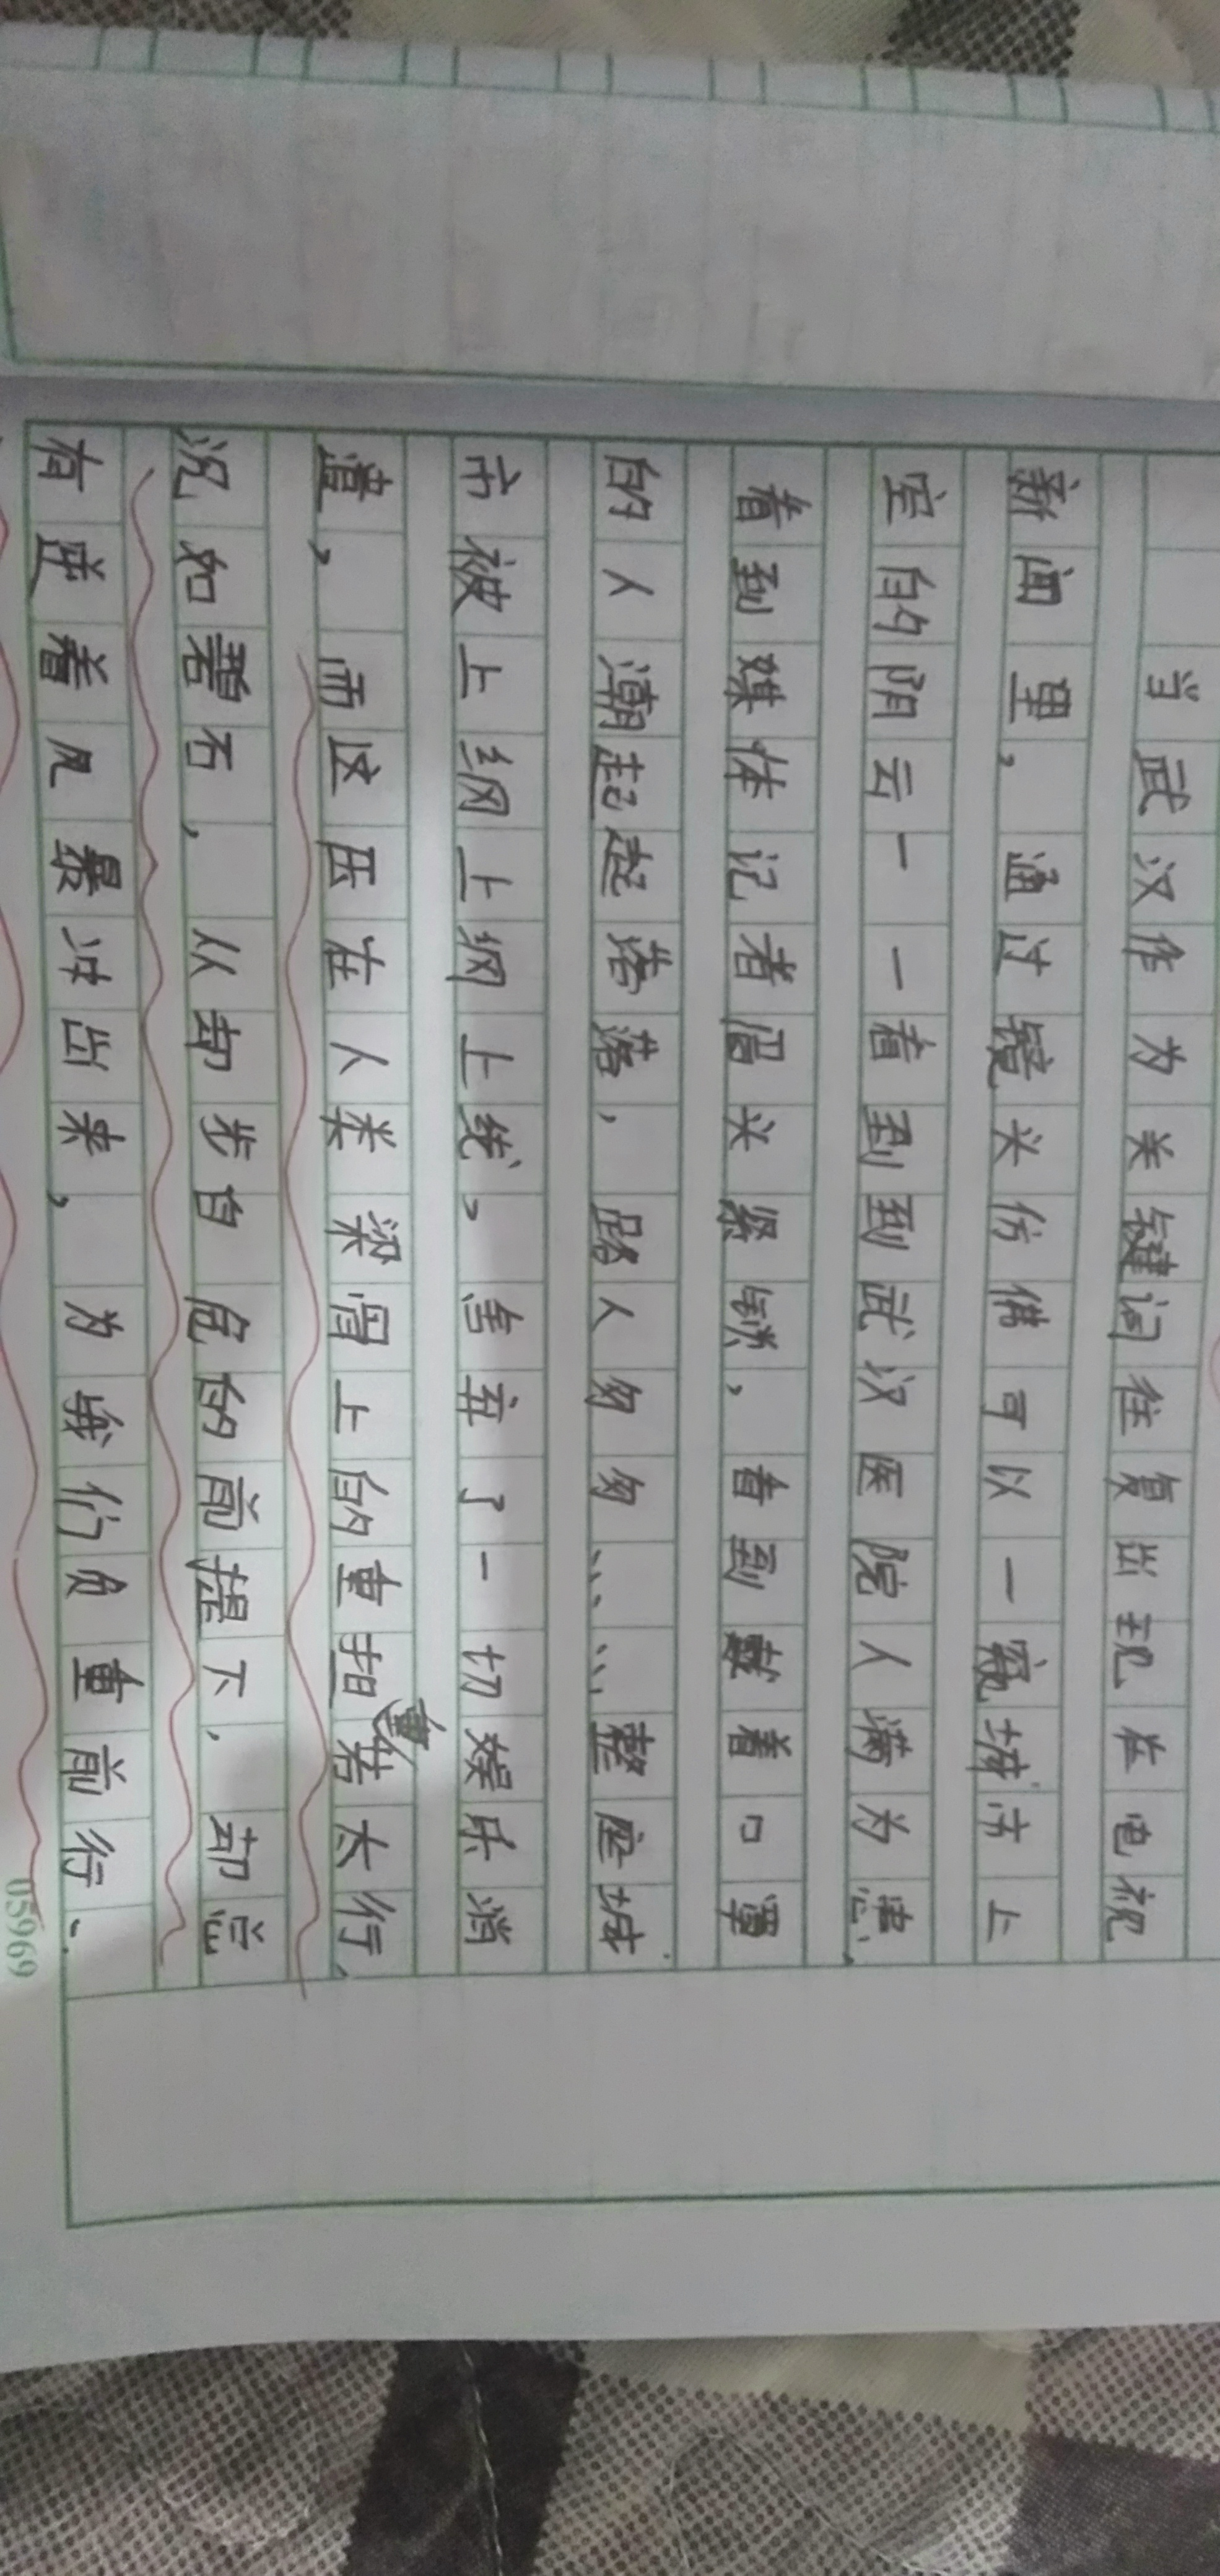 当武汉作为关键词往复出现在电视
新闻里，通过镜头仿佛可以一窥城市上
空的阴云——看到到武汉医院人满为患，
看到媒体记者眉头紧锁，看到戴着口罩
的人潮起起落落，路人匆匆……整座城
市被上纲上纲上线，舍弃了一切娱乐消
遣，而这压在人类梁骨上的重担重若太行，
沉如碧石，从却步自危的前提下，却总
有逆着风暴冲出来，为我们负重前行。
05969